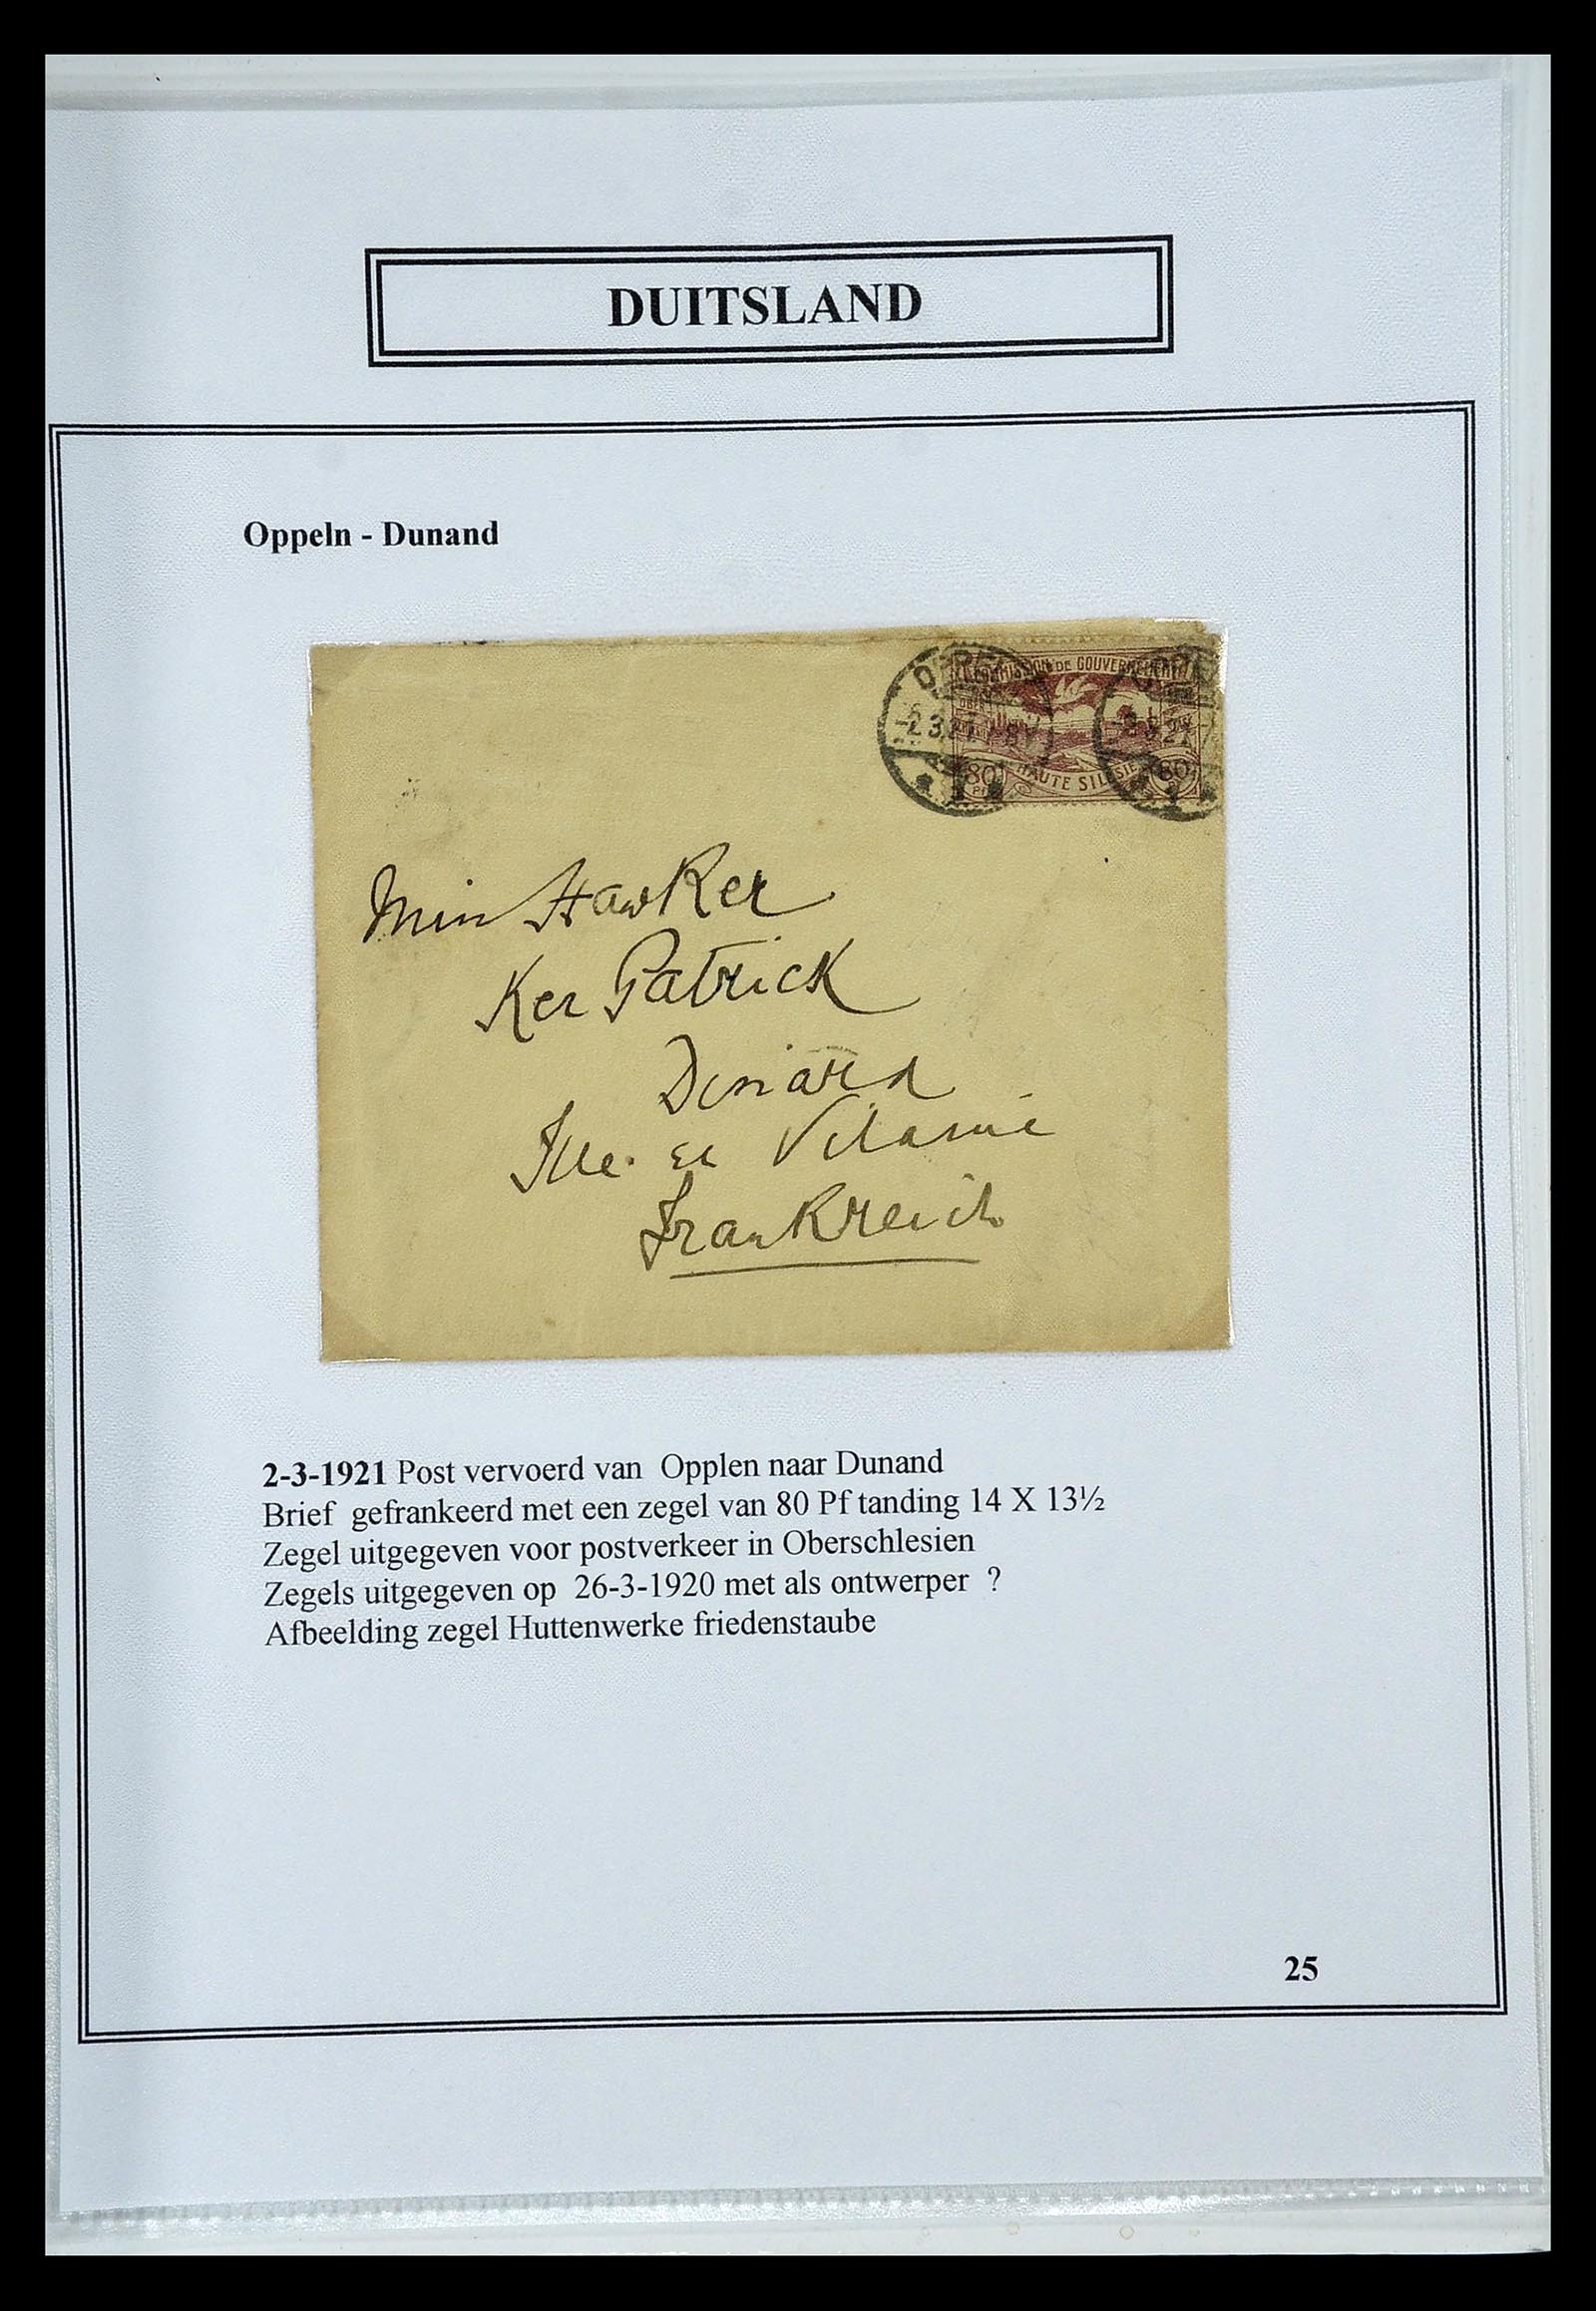 DUITSLAND
Oppeln - Dunand
COMMISSION DE GOUVERNEMENT
-2.3.21
80 HAUTE SILESIE 80
Hawker
Ker Patrick
Dinard
Ille. et Vilaine
Frankreich
2-3-1921 Post vervoerd van Opplen naar Dunand
Brief gefrankeerd met een zegel van 80 Pf tanding 14 X 13½
Zegel uitgegeven voor postverkeer in Oberschlesien
Zegels uitgegeven op 26-3-1920 met als ontwerper ?
Afbeelding zegel Huttenwerke friedenstaube
25